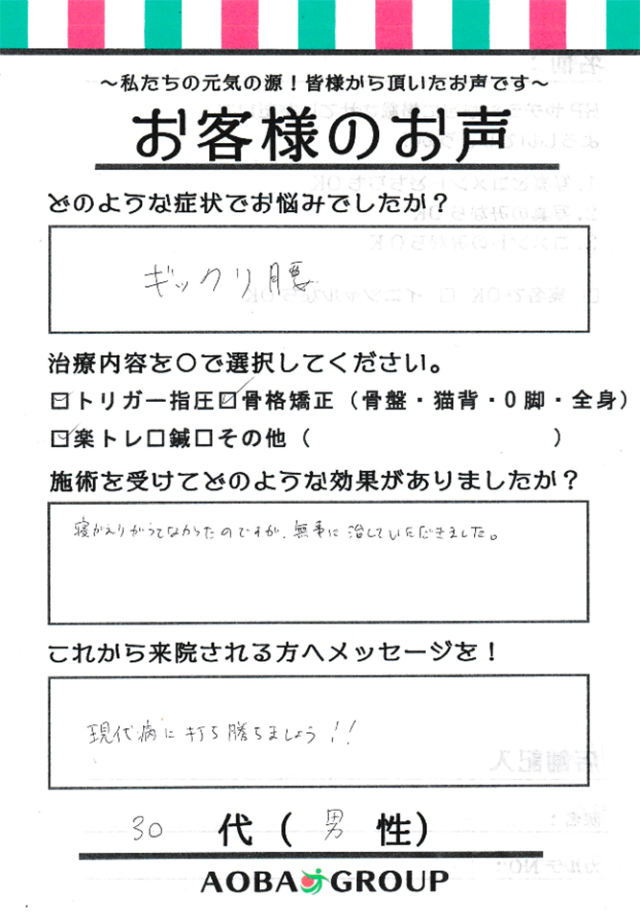 ～私たちの元気の源！皆様から頂いたお声です～
お客様のお声
どのような症状でお悩みでしたか？
ギックリ腰
治療内容を〇で選択してください。
☑トリガー指圧☑骨格矯正（骨盤・猫背・O脚・全身）
☑楽トレ☐鍼☐その他（　　　　　　　　　　）
施術を受けてどのような効果がありましたか？
寝がえりがうてなかったのですが、無事に治していただきました。
これから来院される方へメッセージを！
現代病に打ち勝ちましょう!!
30 代（ 男 性）
AOBA GROUP